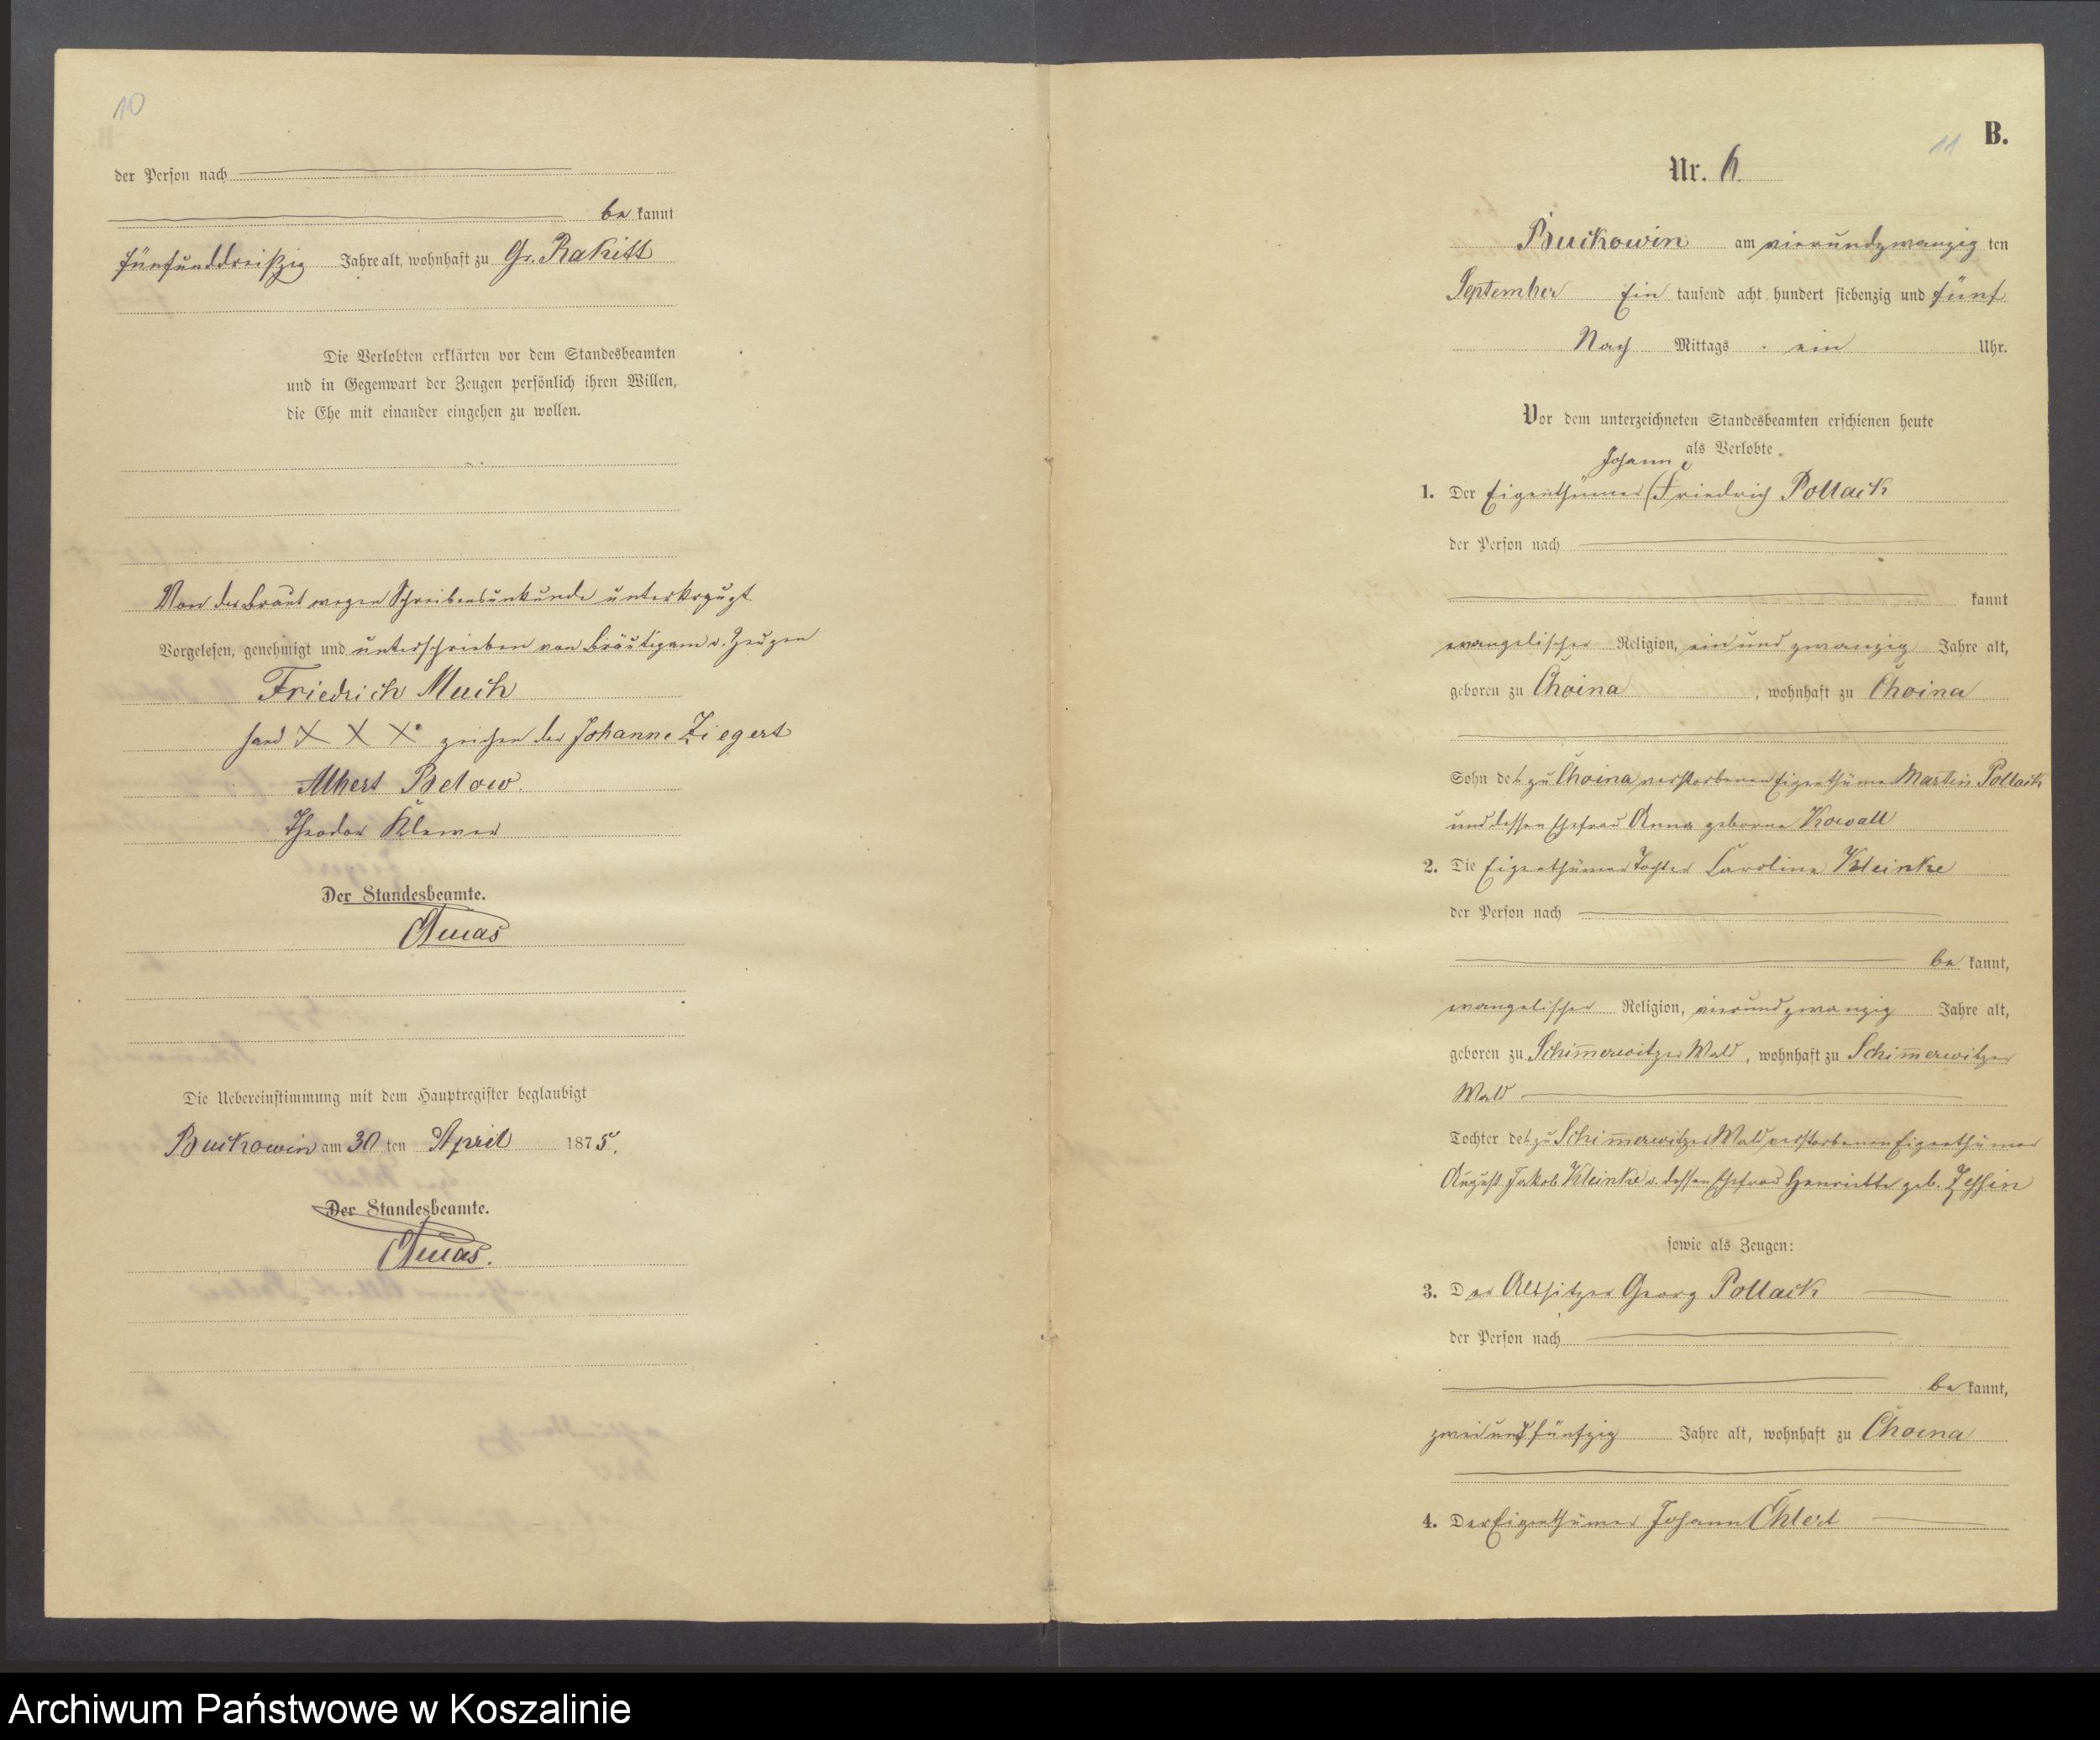 10
der Person nach
be kannt
fünfunddreißig Jahre alt, wohnhaft zu Gr. Rakitt
Die Verlobten erklärten vor dem Standesbeamten
und in Gegenwart der Zeugen persönlich ihren Willen,
die Ehe mit einander eingehen zu wollen.
Von der Braut wegen Schreibensunkunde unterkreuzt
Vorgelesen, genehmigt und unterschrieben von Bräutigam u. Zeugen
Friedrich Much
Hand X X X zeichen der Johanne Ziegert
Albert Below.
Theodor Klewer
Der Standesbeamte.
Die Uebereinstimmung mit dem Hauptregister beglaubigt
Buckowin am 30 ten April 1875.
Der Standesbeamte.
11
B.
Nr. 6.
Buckowin am vierundzwanzig ten
September Ein tausend acht hundert siebenzig und fünf
Nach Mittags ein Uhr.
Vor dem unterzeichneten Standesbeamten erschienen heute
als Verlobte
Johann
1. Der Eigenthümer Friedrich Pollack
der Person nach
kannt
evangelischer Religion, einundzwanzig Jahre alt,
geboren zu Choina, wohnhaft zu Choina
Sohn des zu Choina verstorbenen Eigenthümer Martin Pollack
und dessen Ehefrau Anna geborne Kowall
2. Die Eigenthümer Tochter Caroline Kleinke
der Person nach
be kannt,
evangelischer Religion, vierundzwanzig Jahre alt,
geboren zu Schimmerwitzer Wald, wohnhaft zu Schimmerwitzer
Wald
Tochter des zu Schimmerwitzer Wald verstorbenen Eigenthümer
August Jakob Kleinke u. dessen Ehefrau Henriette geb. Zessin
sowie als Zeugen:
3. Der Altsitzer Georg Pollack
der Person nach
be kannt,
zweiundfünfzig Jahre alt, wohnhaft zu Choina
4. Der Eigenthümer Johann Öhlert
Archiwum Państwowe w Koszalinie